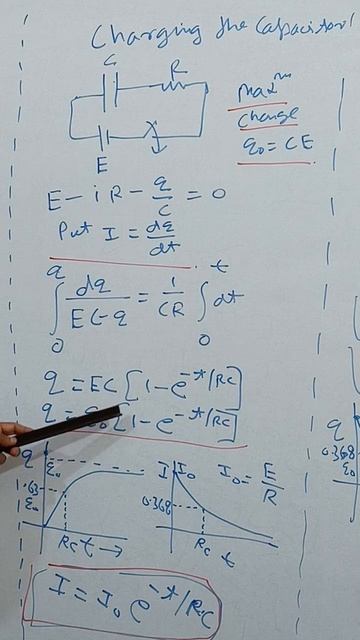 Charging the Capacitor
C
R
E
Max^m
charge
q₀ = CE
E - iR - q/C = 0
Put I = dq/dt
∫₀^q dq/(EC-q) = 1/CR ∫₀^t dt
q = EC [1 - e^(-t/RC)]
q = q₀ [1 - e^(-t/RC)]
q
q₀
.63
q₀
RC t →
I I₀
I₀ = E/R
0.368
RC t
q
0.368
I = I₀ e^(-t/RC)